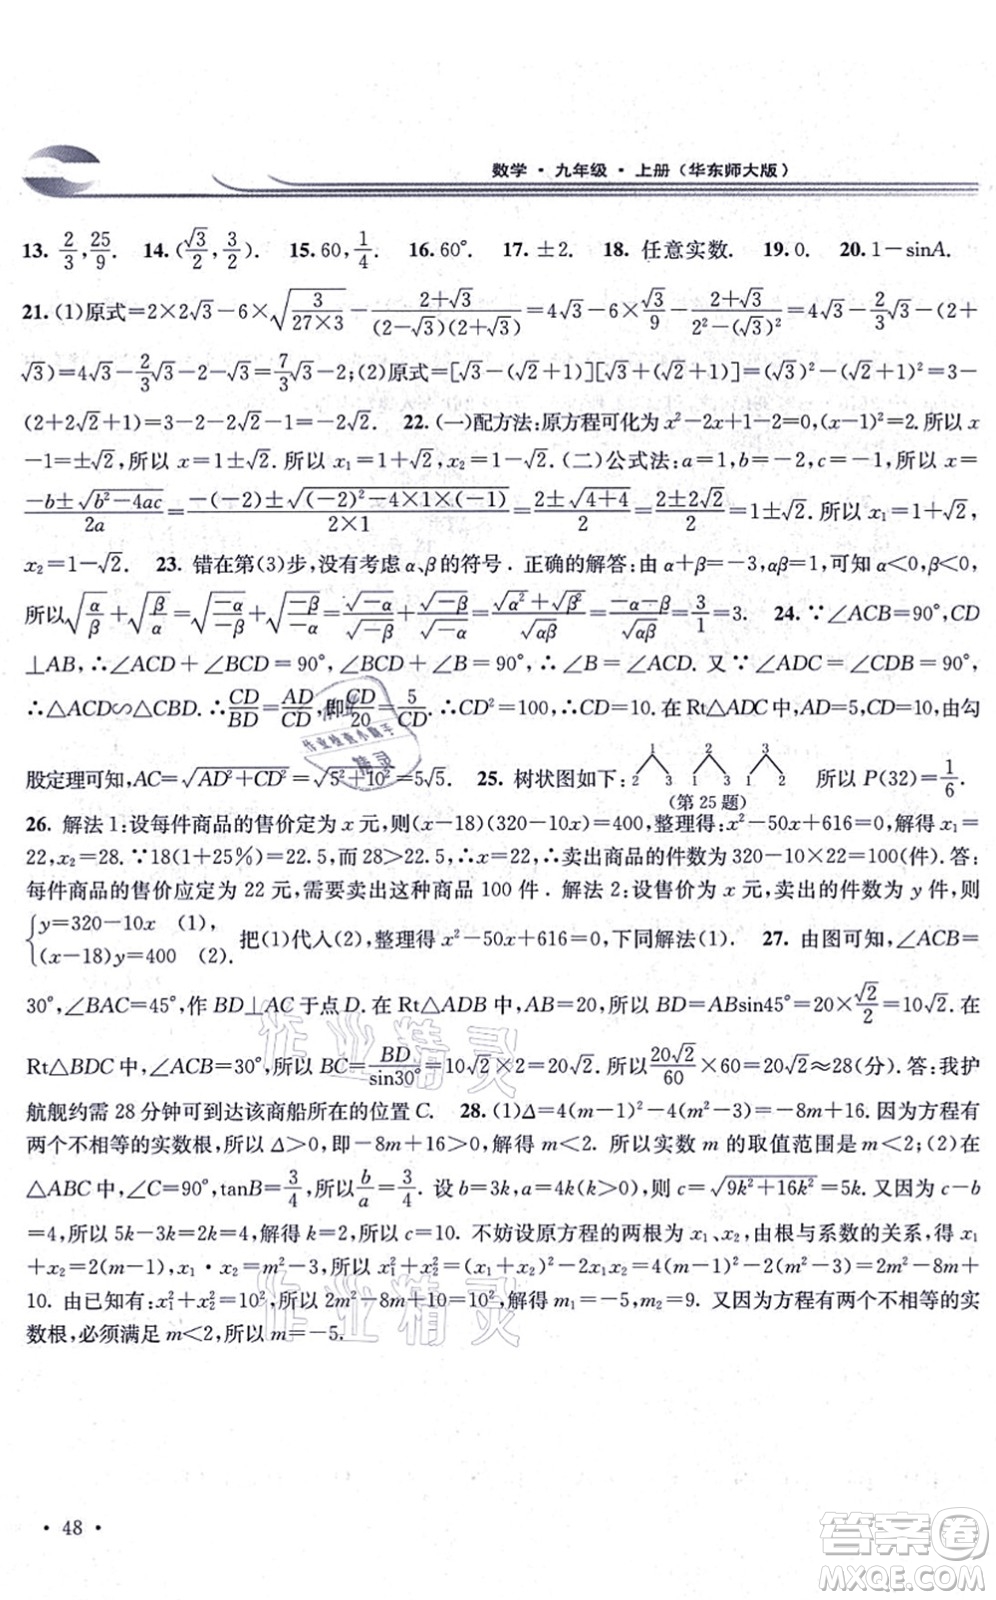 数学·九年级·上册(华东师大版)
13. 2/3, 25/9. 14. (√3/2, 3/2). 15. 60, 1/4. 16. 60°. 17. ±2. 18. 任意实数. 19. 0. 20. 1－sinA.
21. (1)原式＝2×2√3－6×√(3/(27×3))－(2＋√3)/((2－√3)(2＋√3))＝4√3－6×√3/9－(2＋√3)/(2²－(√3)²)＝4√3－2/3√3－(2＋
√3)＝4√3－2/3√3－2－√3＝7/3√3－2;(2)原式＝[√3－(√2＋1)][√3＋(√2＋1)]＝(√3)²－(√2＋1)²＝3－
(2＋2√2＋1)＝3－2－2√2－1＝－2√2. 22. (一)配方法:原方程可化为 x²－2x＋1＝0,(x－1)²＝2.所以 x
－1＝±√2,所以 x＝1±√2,所以 x₁＝1＋√2,x₂＝1－√2.(二)公式法:a＝1,b＝－2,c＝－1,所以 x＝
(－b±√(b²－4ac))/2a＝(－(－2)±√((－2)²－4×1×(－1)))/(2×1)＝(2±√(4＋4))/2＝(2±2√2)/2＝1±√2.所以 x₁＝1＋√2,
x₂＝1－√2. 23. 错在第(3)步,没有考虑 α、β 的符号. 正确的解答:由 α＋β＝－3,αβ＝1,可知 α＜0,β＜0,
所以√(α/β)＋√(β/α)＝√(－α/－β)＋√(－β/－α)＝√(－α)/√(－β)＋√(－β)/√(－α)＝(√α²＋√β²)/√(αβ)＝(－α－β)/√(αβ)＝3/1＝3. 24. ∵∠ACB＝90°,CD
⊥AB,∴∠ACD＋∠BCD＝90°,∠BCD＋∠B＝90°,∴∠B＝∠ACD. 又∵∠ADC＝∠CDB＝90°,
∴△ACD∽△CBD.∴CD/BD＝AD/CD,即CD/20＝5/CD.∴CD²＝100,∴CD＝10.在 Rt△ADC 中,AD＝5,CD＝10,由勾
股定理可知,AC＝√(AD²＋CD²)＝√(5²＋10²)＝5√5. 25. 树状图如下: 1 2 3 2 3 1 3 1 2 所以 P(32)＝1/6.
(第 25 题)
26. 解法 1:设每件商品的售价定为 x 元,则(x－18)(320－10x)＝400,整理得:x²－50x＋616＝0,解得 x₁＝
22,x₂＝28.∵18(1＋25%)＝22.5,而28＞22.5,∴x＝22,∴卖出商品的件数为320－10×22＝100(件).答:
每件商品的售价应定为 22 元,需要卖出这种商品 100 件. 解法 2:设售价为 x 元,卖出的件数为 y 件,则
{y＝320－10x (1)
(x－18)y＝400 (2). 把(1)代入(2),整理得 x²－50x＋616＝0,下同解法(1). 27. 由图可知,∠ACB＝
30°,∠BAC＝45°,作 BD⊥AC 于点 D. 在 Rt△ADB 中,AB＝20,所以 BD＝ABsin45°＝20×√2/2＝10√2. 在
Rt△BDC 中,∠ACB＝30°,所以 BC＝BD/sin30°＝10√2×2＝20√2.所以20√2/60×60＝20√2≈28(分).答:我护
航舰约需 28 分钟可到达该商船所在的位置 C. 28. (1)Δ＝4(m－1)²－4(m²－3)＝－8m＋16. 因为方程有
两个不相等的实数根,所以 Δ＞0,即－8m＋16＞0,解得 m＜2. 所以实数 m 的取值范围是 m＜2;(2)在
△ABC 中,∠C＝90°,tanB＝3/4,所以b/a＝3/4. 设 b＝3k,a＝4k(k＞0),则 c＝√(9k²＋16k²)＝5k.又因为 c－b
＝4,所以 5k－3k＝2k＝4,解得 k＝2,所以 c＝10. 不妨设原方程的两根为 x₁、x₂,由根与系数的关系,得 x₁
＋x₂＝2(m－1),x₁·x₂＝m²－3,所以 x₁²＋x₂²＝(x₁＋x₂)²－2x₁x₂＝4(m－1)²－2(m²－3)＝2m²－8m＋
10. 由已知有:x₁²＋x₂²＝10²,所以 2m²－8m＋10＝10²,解得 m₁＝－5,m₂＝9. 又因为方程有两个不相等的实
数根,必须满足 m＜2,所以 m＝－5.
· 48 ·
作业精灵
作业检查小助手
精灵
作业精灵
作业精灵
答案卷
MXQE.COM